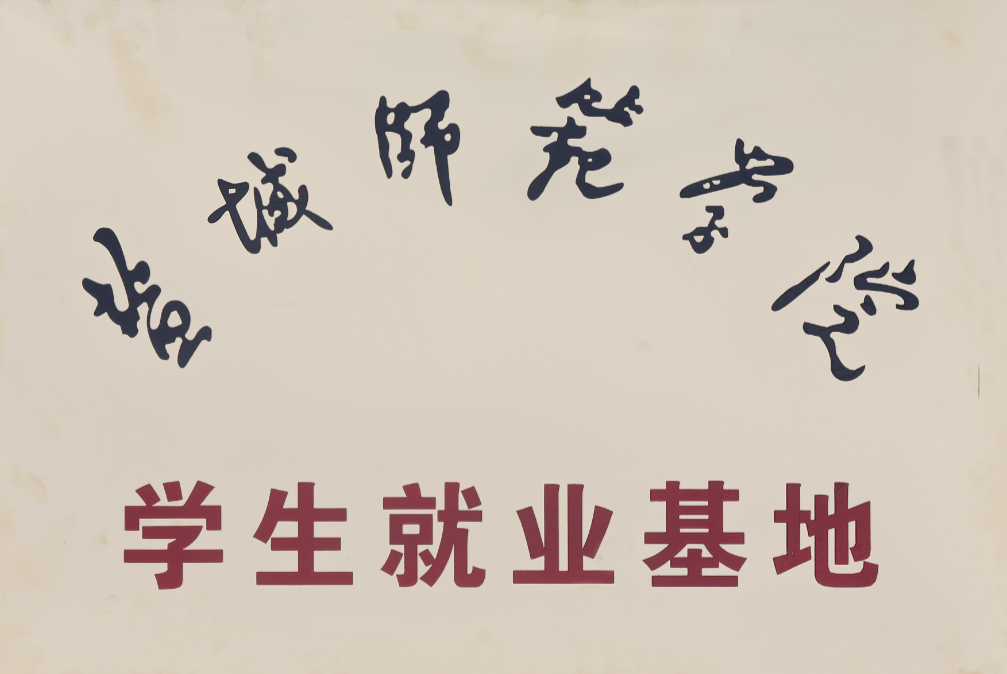 盐城师范学院
学生就业基地